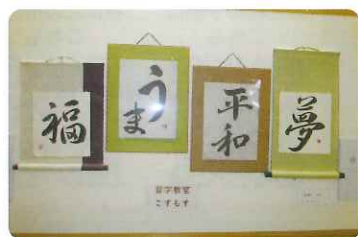 福
うま
平和
夢
習字教室
こすもす